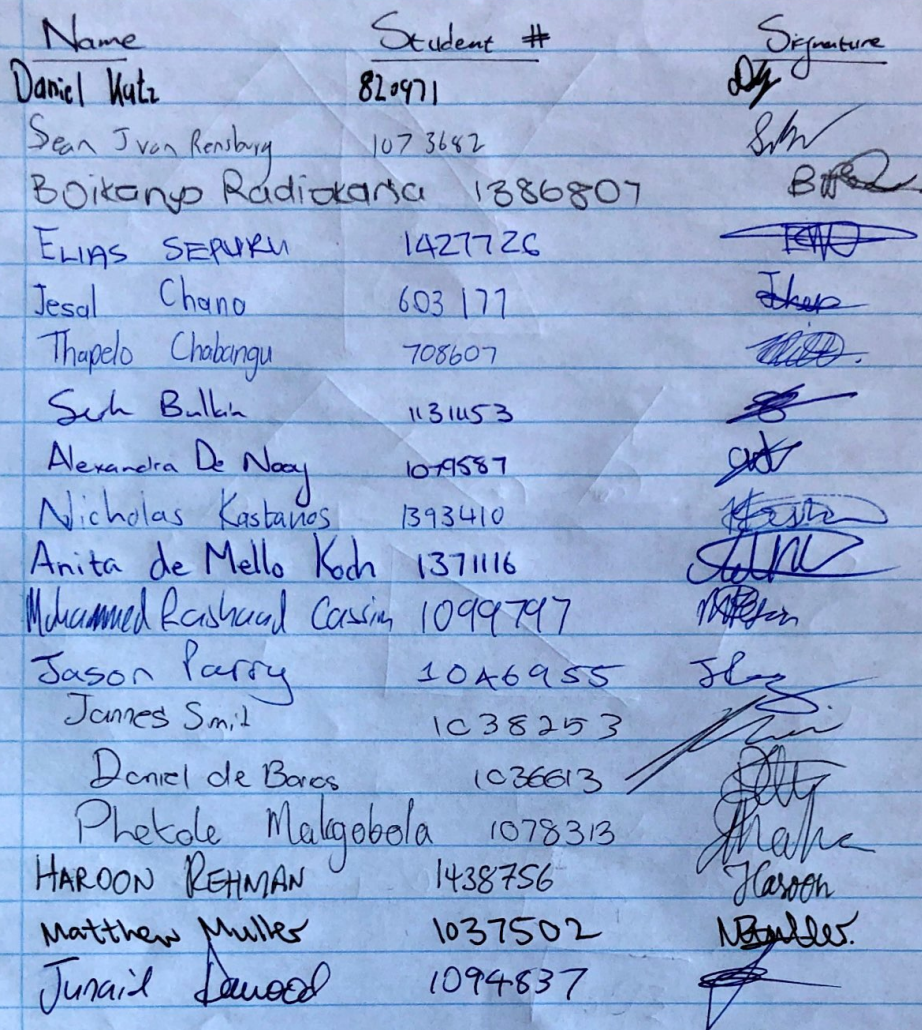 Name Student # Signature
Daniel Katz 820971
Sean J van Rensburg 1073682
Boikanyo Radiokana 1386807
ELIAS SEPURU 1427726
Jesal Chana 603177
Thapelo Chabangu 708607
Bulkin 1131453
Alexandra De Nooy 1079587
Nicholas Kastanos 1393410
Anita de Mello Koch 1371116
Mohammed Rashaad Cassim 1099797
Jason Parry 1046955
Jannes Smit 1038253
Daniel de Barros 1036613
Phetole Makgobola 1078313
HAROON REHMAN 1438756 Haroon
Matthew Muller 1037502
Junaid Dawood 1094837